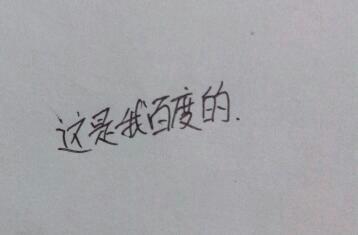 这是我百度的.